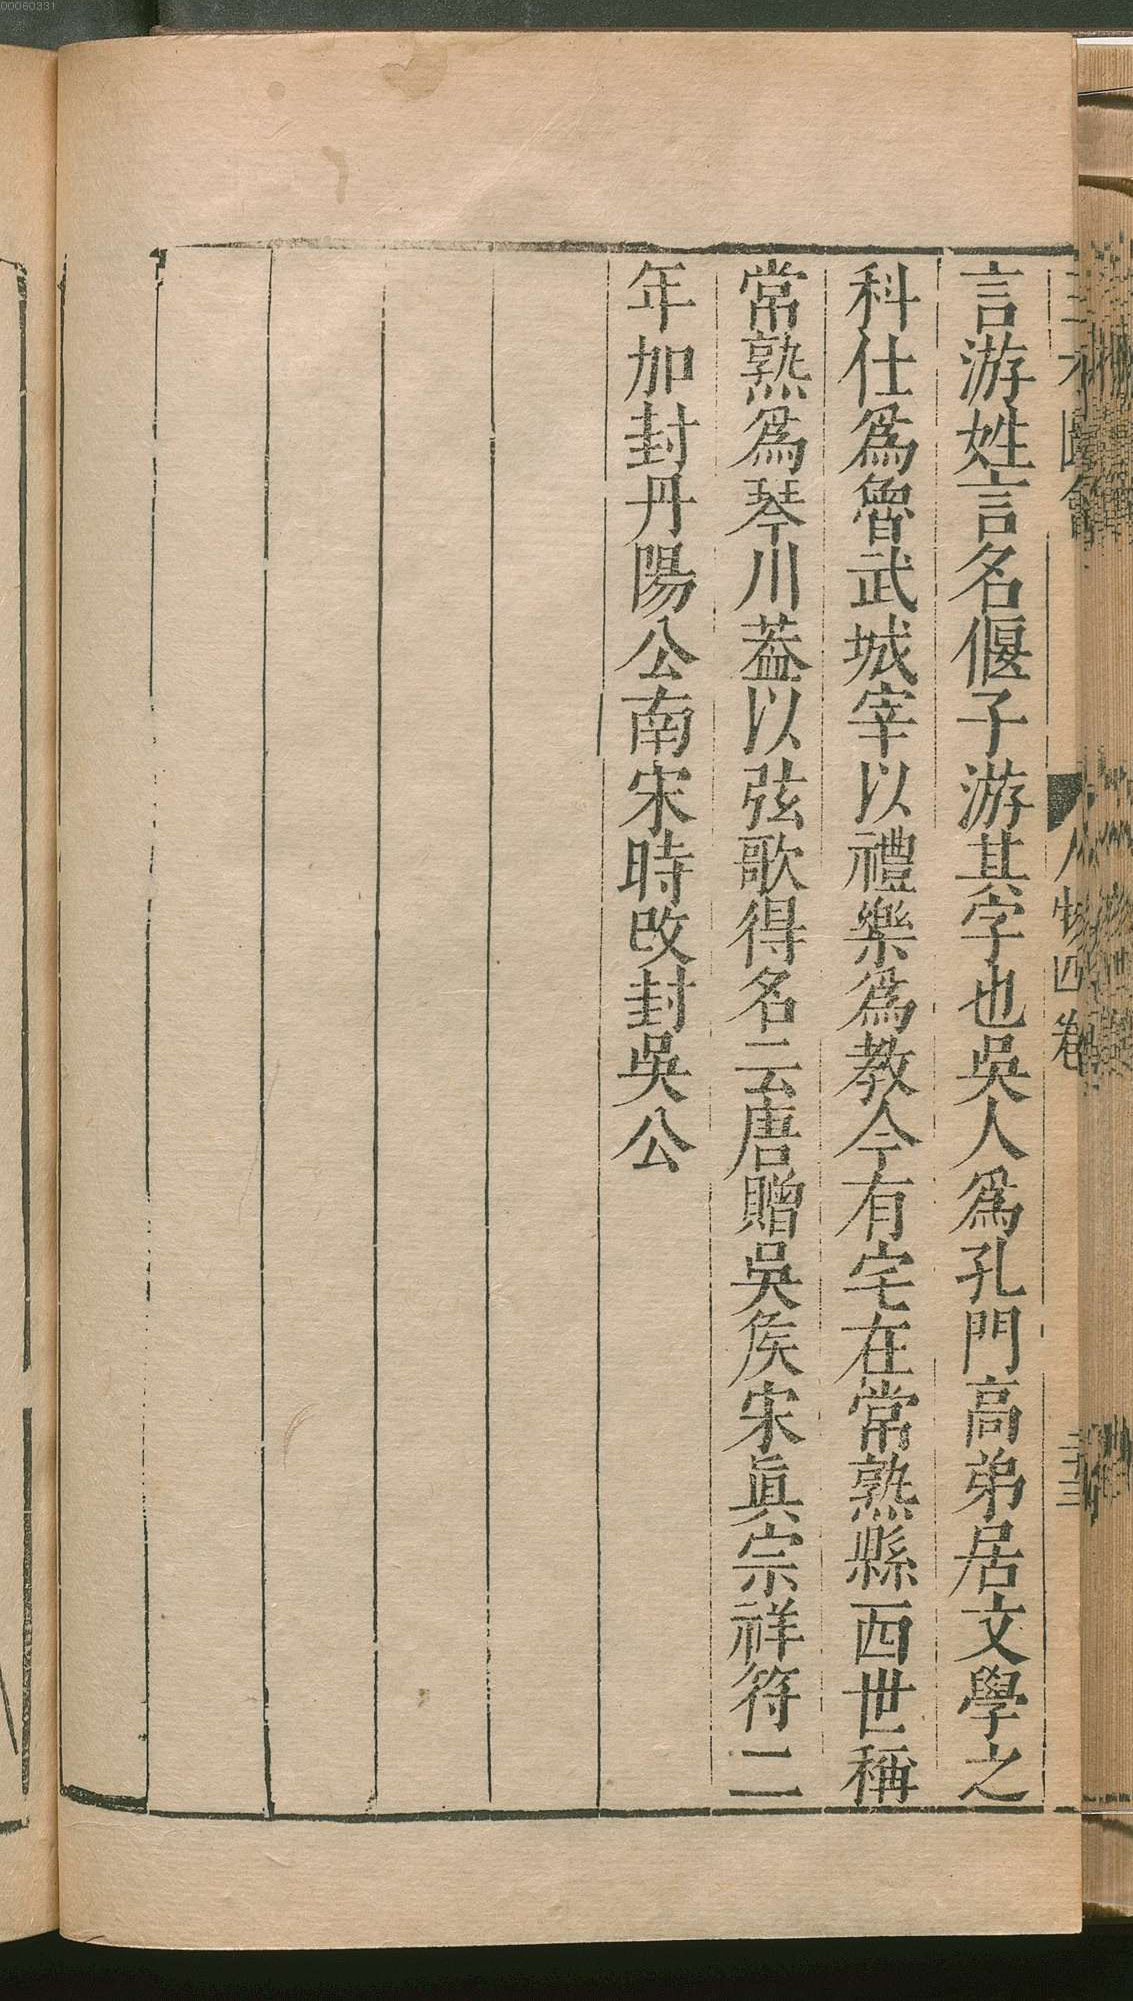 言游姓言名偃子游其字也吳人爲孔門高弟居文學之
科仕爲魯武城宰以禮樂爲教今有宅在常熟縣西世稱
常熟爲琴川葢以弦歌得名云唐贈吳矦宋眞宗祥符二
年加封丹陽公南宋時改封吳公
人物四卷
00060331